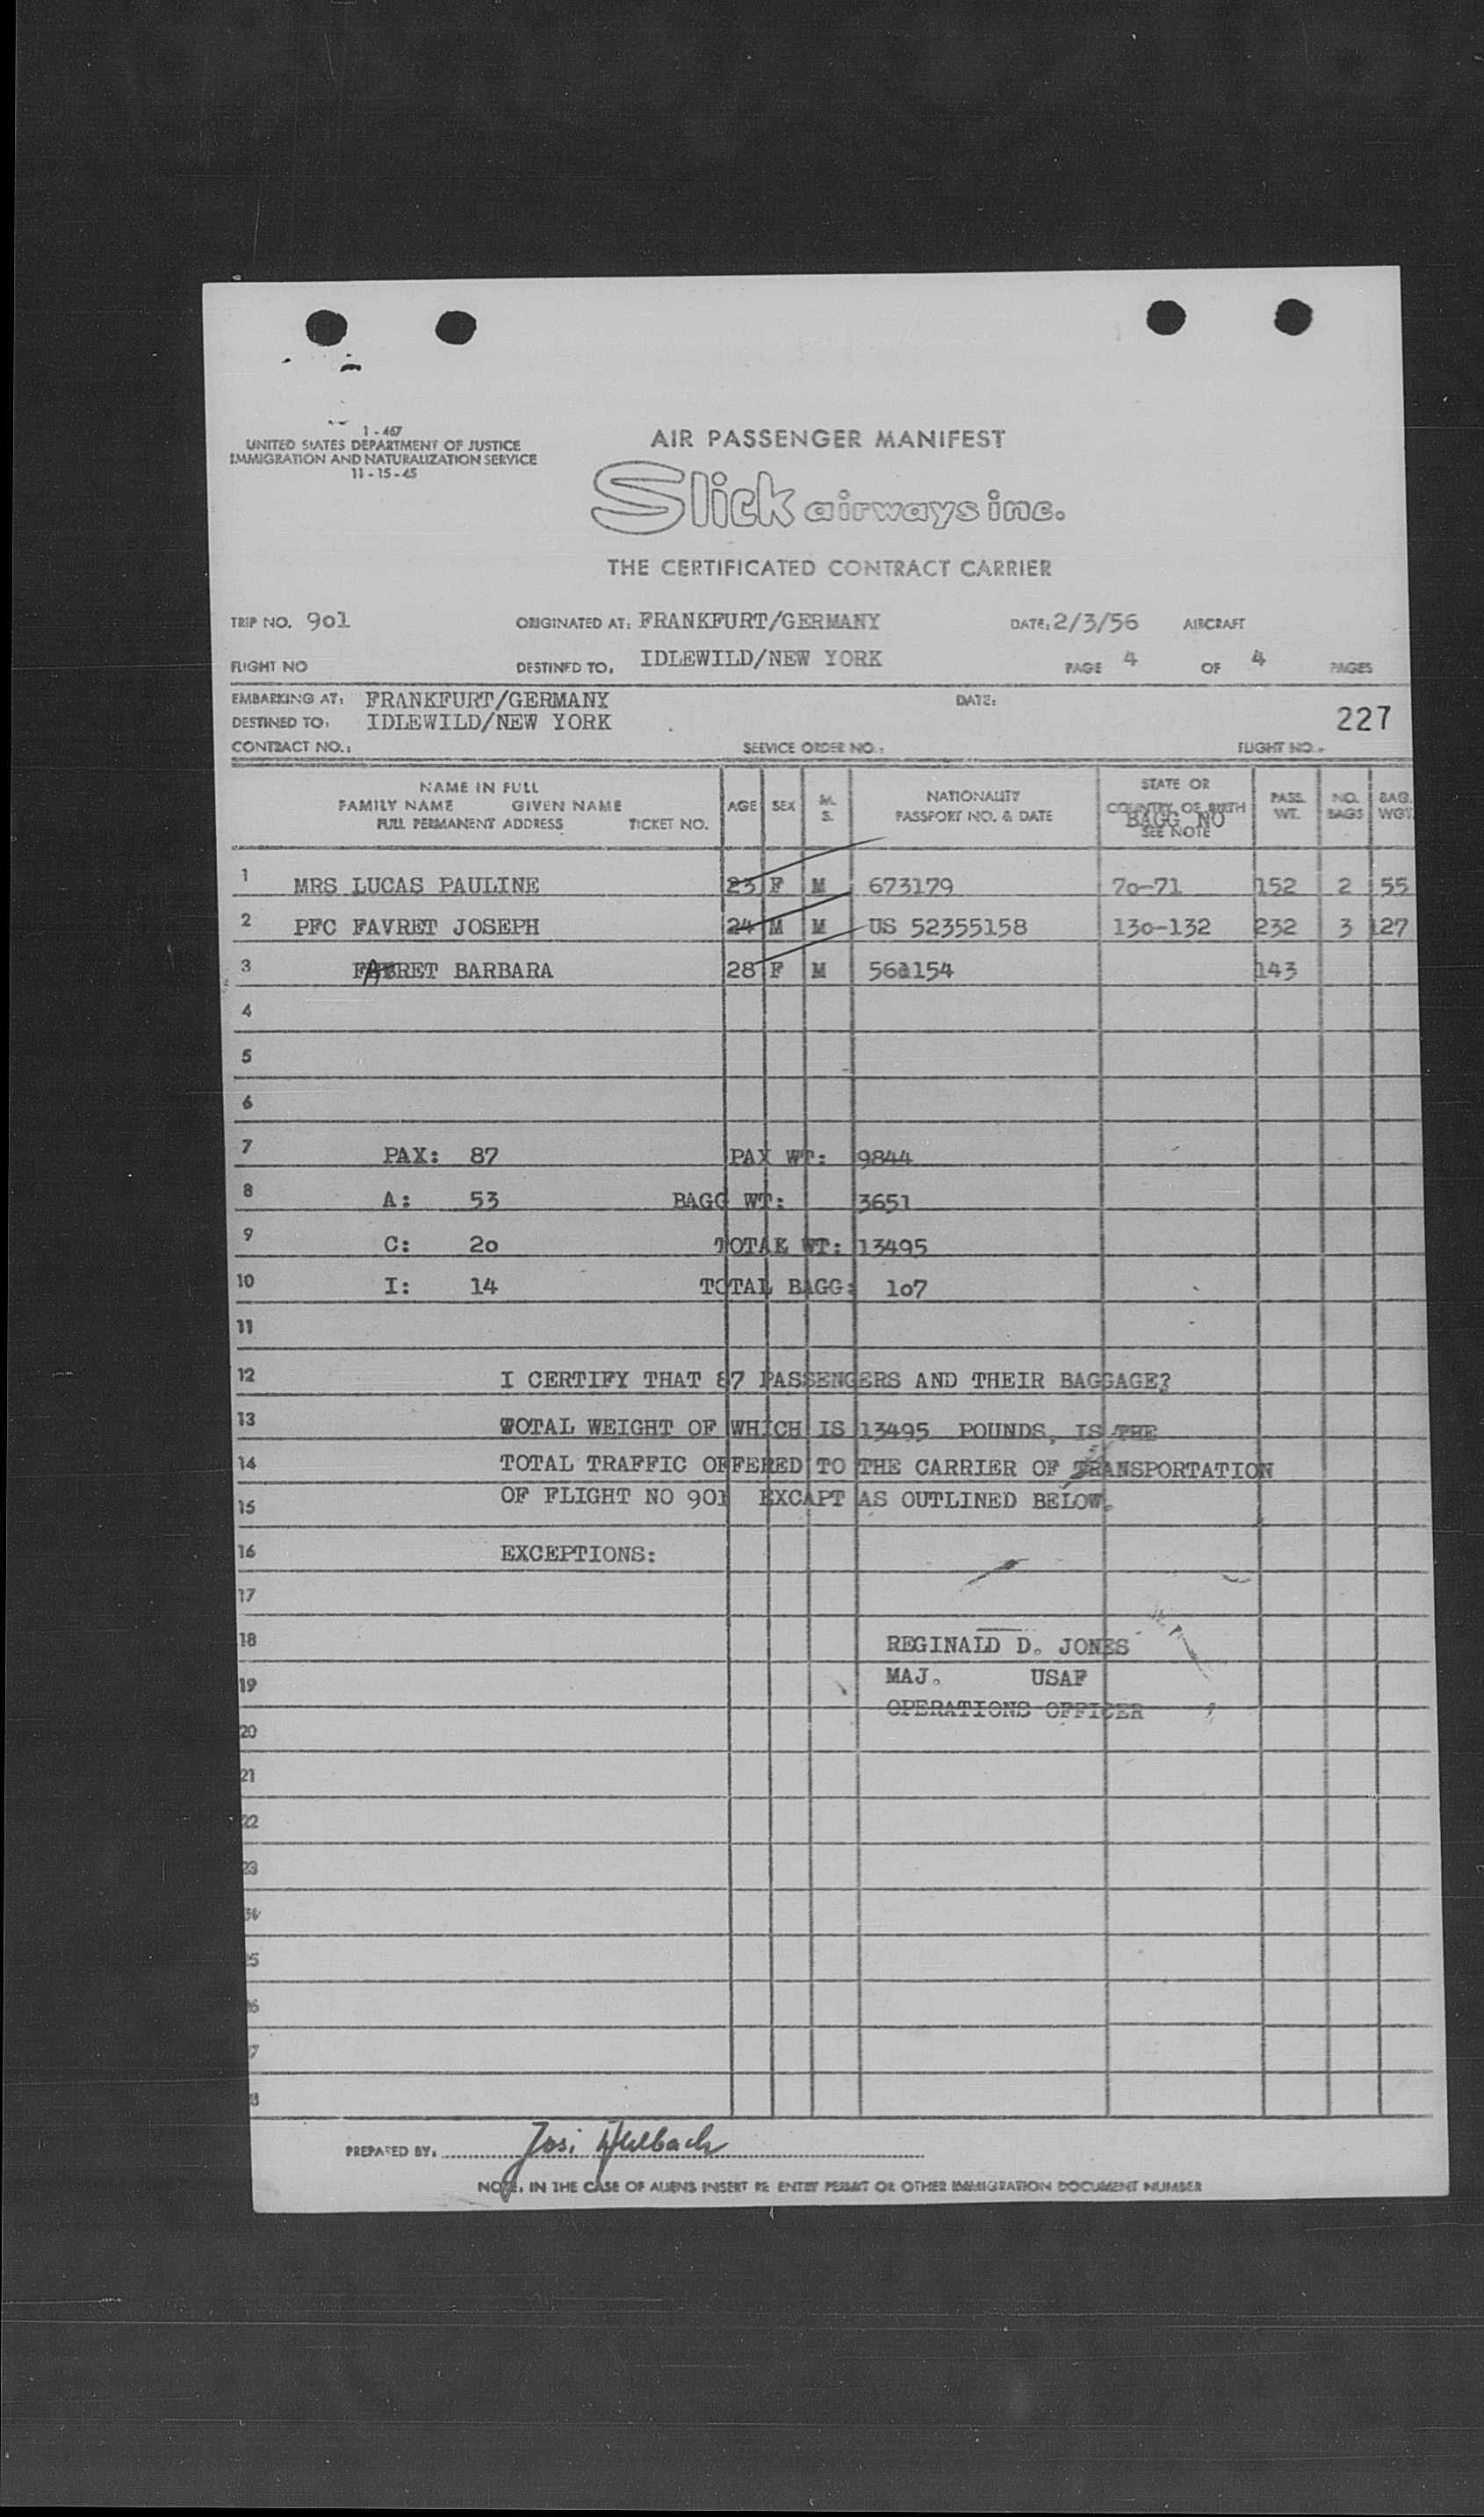 1 - 467
UNITED STATES DEPARTMENT OF JUSTICE
IMMIGRATION AND NATURALIZATION SERVICE
11 - 15 - 45
AIR PASSENGER MANIFEST
Slick airways inc.
THE CERTIFICATED CONTRACT CARRIER
TRIP NO. 901 ORIGINATED AT: FRANKFURT/GERMANY DATE: 2/3/56 AIRCRAFT
FLIGHT NO DESTINED TO, IDLEWILD/NEW YORK PAGE 4 OF 4 PAGES
EMBARKING AT: FRANKFURT/GERMANY DATE:
DESTINED TO: IDLEWILD/NEW YORK 227
CONTRACT NO.: SERVICE ORDER NO.: FLIGHT NO.
NAME IN FULL
FAMILY NAME GIVEN NAME
FULL PERMANENT ADDRESS TICKET NO.
AGE SEX M. S.
NATIONALITY
PASSPORT NO. & DATE
STATE OR
COUNTRY OF BIRTH
BAGG NO
SEE NOTE
PASS. WT.
NO. BAGS
BAG. WGT.
1 MRS LUCAS PAULINE 23 F M 673179 70-71 152 2 55
2 PFC FAVRET JOSEPH 24 M M US 52355158 130-132 232 3 127
3 FAVRET BARBARA 28 F M 56 154 143
4
5
6
7 PAX: 87 PAX WT: 9844
8 A: 53 BAGG WT: 3651
9 C: 20 TOTAL WT: 13495
10 I: 14 TOTAL BAGG: 107
11
12 I CERTIFY THAT 87 PASSENGERS AND THEIR BAGGAGE?
13 TOTAL WEIGHT OF WHICH IS 13495 POUNDS, IS THE
14 TOTAL TRAFFIC OFFERED TO THE CARRIER OF TRANSPORTATION
15 OF FLIGHT NO 901 EXCAPT AS OUTLINED BELOW.
16 EXCEPTIONS:
17
18 REGINALD D. JONES
19 MAJ. USAF
OPERATIONS OFFICER
20
21
22
23
PREPARED BY,
NOTE, IN THE CASE OF ALIENS INSERT RE ENTRY PERMIT OR OTHER IMMIGRATION DOCUMENT NUMBER